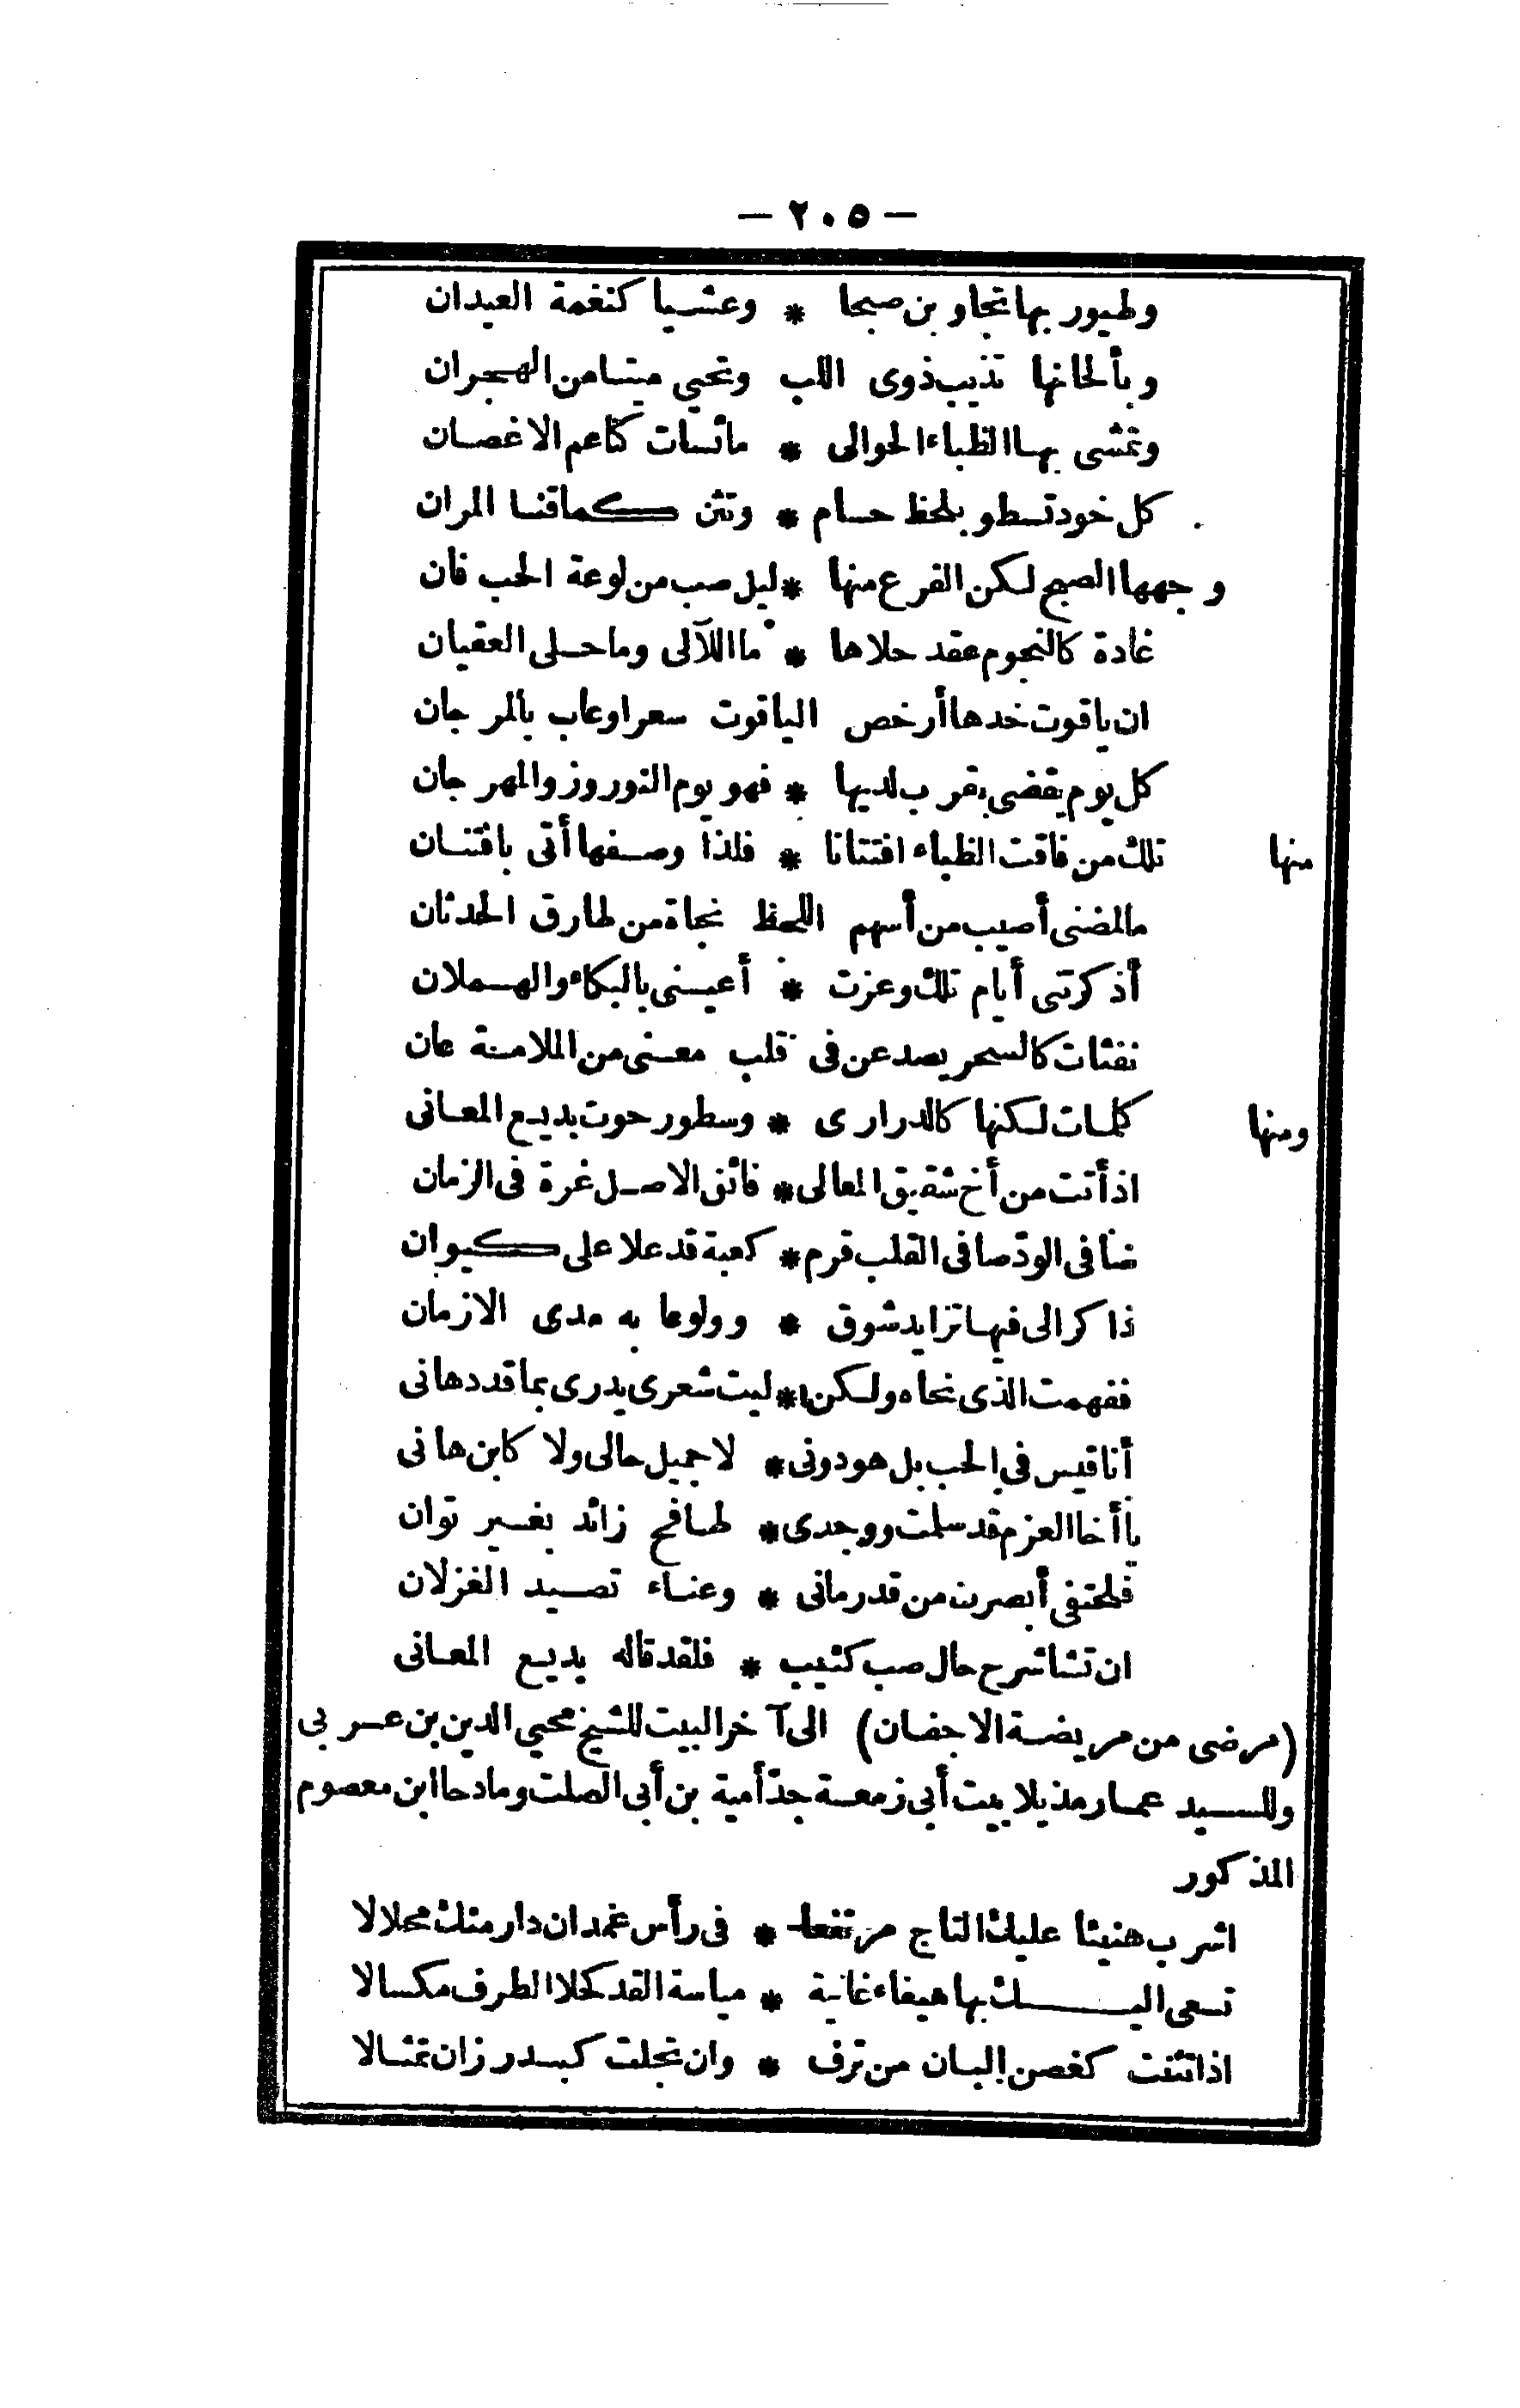 — ٢٠٥ —
وطيور بها تجاوبن صبحا * وعشيا كنغمة العيدان
وبألحانها تذيب ذوى اللب وتحيي ميتا من الهجران
وتمشى بها الظباء الحوالى * مائسات كناعم الاغصان
كل خود تسطو بلحظ حسام * وتثن كما قنا المران
وجهها الصبح لكن الفرع منها * ليل صب من لوعة الحب فان
غادة كالنجوم عقد حلاها * ما اللآلى وما حلى العقيان
ان ياقوت خدها أرخص الياقوت سعرا وعاب بالمرجان
كل يوم يقضى بقرب لديها * فهو يوم النوروز والمهرجان
منها تلك من فاقت الظباء افتتانا * فلذا وصفها أتى بافتنان
مالمضنى أصيب من أسهم اللحظ نجاة من طارق الحدثان
أذكرتنى أيام تلك وعزت * أعينى بالبكاء والهملان
نفثات كالسحر يصدعن فى قلب معنى من الملامة عان
ومنها كلمات لكنها كالدرارى * وسطور حوت بديع المعانى
اذ أتت من أخ شقيق المعالى * فائق الاصل غرة فى الزمان
ضافى الود صافى القلب قرم * كعبة قد علا على كيوان
ذاكرا لى فيها تزايد شوق * وولوعا به مدى الازمان
ففهمت الذى نحاه ولكن * ليت شعرى يدرى بما قد دهانى
أنا قيس فى الحب بل هو دونى * لا جميل حالى ولا كابن هانى
يا أخا العزم قد سلمت ووجدى * طافح زائد بغير توان
فلحتفى أبصرت من قد رمانى * وعناء تصيد الغزلان
ان تشا شرح حال صب كئيب * فلقد قاله بديع المعانى
(مرضى من مريضة الاجفان) الى آخر البيت للشيخ محيي الدين بن عربى
وللسيد عمار مذيلا بيت أبى زمعة جد أمية بن أبى الصلت ومادحا ابن معصوم
المذكور
اشرب هنيئا عليك التاج مرتفعا * فى رأس غمدان دار منك محلالا
تسعى اليك بها هيفاء غانية * مياسة القد كحلا الطرف مكسالا
اذا تثنت كغصن البان من ترف * وان تجلت كبدر زان تمثالا